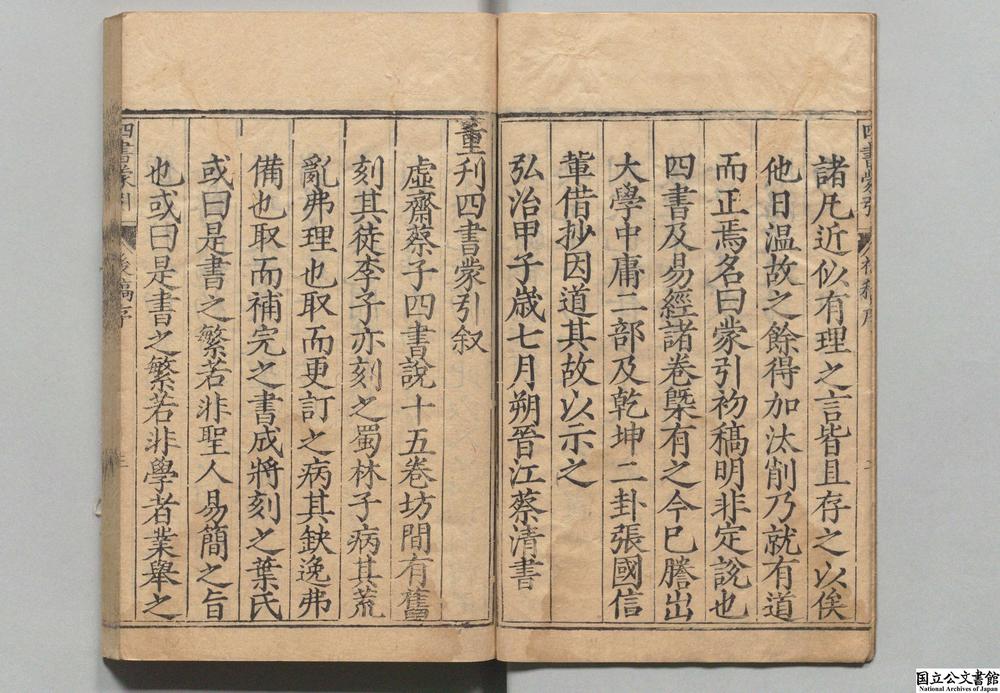 諸凡近似有理之言皆且存之以俟
他日温故之餘得加汰削乃就有道
而正焉名曰蒙引初稿明非定說也
四書及易經諸卷槩有之今已謄出
大學中庸二部及乾坤二卦張國信
軰借抄因道其故以示之
弘治甲子歲七月朔晉江蔡清書
重刋四書蒙引叙
虛齋蔡子四書說十五卷坊間有舊
刻其徒李子亦刻之蜀林子病其荒
亂弗理也取而更訂之病其缺逸弗
備也取而補完之書成將刻之葉氏
或曰是書之繁若非聖人易簡之旨
也或曰是書之繁若非學者業舉之
国立公文書館
National Archives of Japan